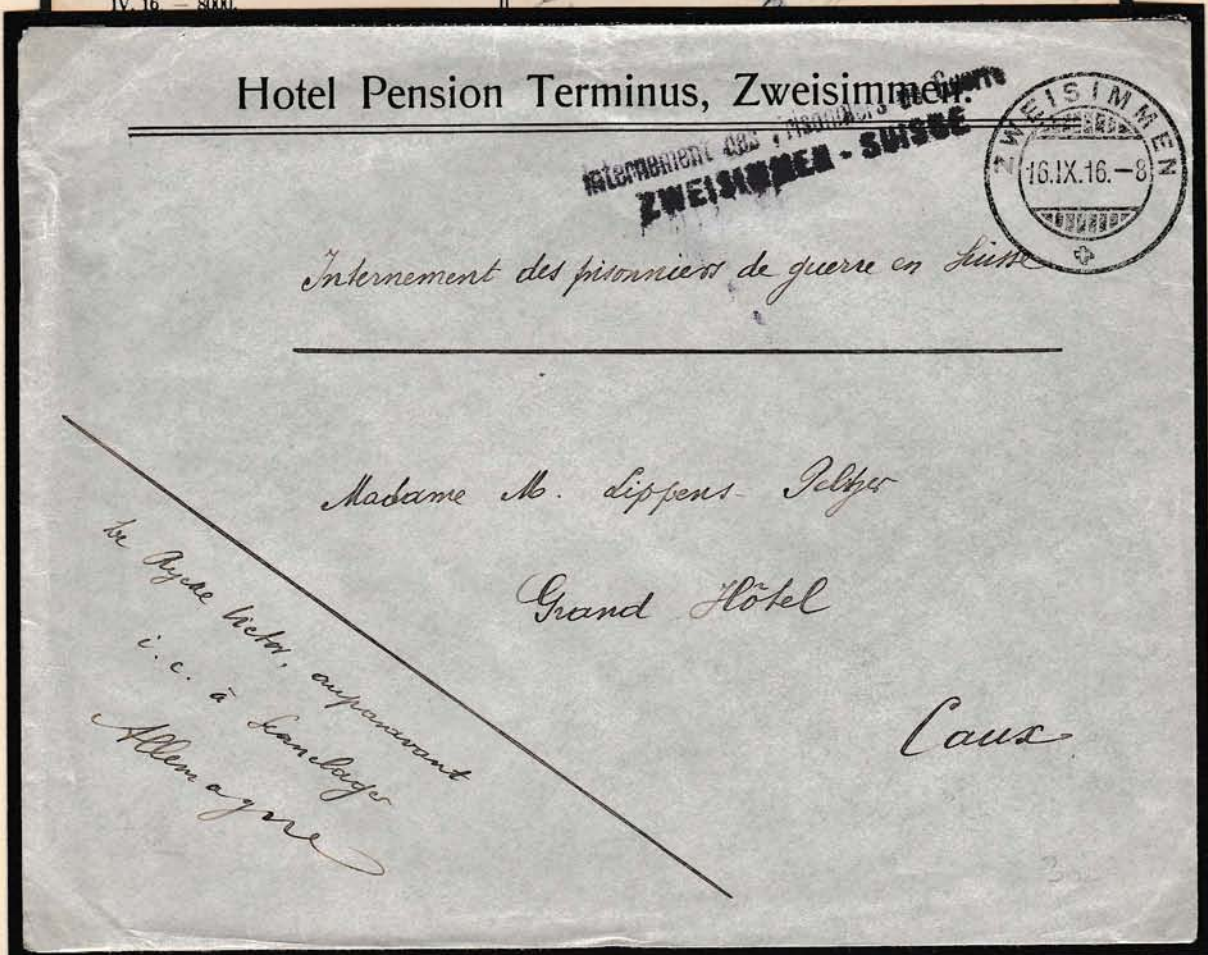 IV. 16. — 8000.
Hotel Pension Terminus, Zweisimmen.
Internement des Prisonniers de Guerre
ZWEISIMMEN - SUISSE
ZWEISIMMEN
16.IX.16.–8
Internement des prisonniers de guerre en Suisse
Madame M. Lippens-Peltzer
Grand Hôtel
Caux
De Rycke Victor, auparavant
i. c. à Sennelager
Allemagne